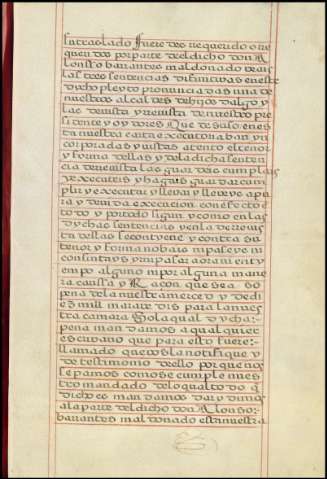 su traslado fueredes requerido o re
queridos por parte del dicho don A
lonsso barrantes maldonado veais
las tres sentencias difinitivas en este
dicho pleyto pronunciadas una de
nuestros alcaldes de hijos dalgo y
las de vista y revista de nuestro pre
sidente y oydores Que de suso en es
ta nuestra carta executoria ban yn
corporadas y vistas atento el tenor
y forma dellas y de la dicha senten
cia de revista las guardeis cumplais
y executeis y hagais guardar cum
plir y executar y llevar y lleveys a pu
ra y devida execucion con efecto en
todo y por todo sigun y como en las
dychas sentencias y en la de revis
ta dellas se contyene y contra su
tenor y forma no bais ni paseis ni
consintays yr ni pasar aora ni en ty
empo alguno ni por alguna mane
ra caussa y Raçon que sea so
pena de la nuestra merced y de di
ez mill maravedis para la nuestra
camara So la qual dycha
pena mandamos a qual quier
escribano que para esto fuere
llamado que vos la notifique y
de testimonio dello por que nos
sepamos como se cumple nues
tro mandado de lo qual todo q
dicho es mandamos dar y dimos
a la parte del dicho don Alonso
barrantes maldonado esta nuestra